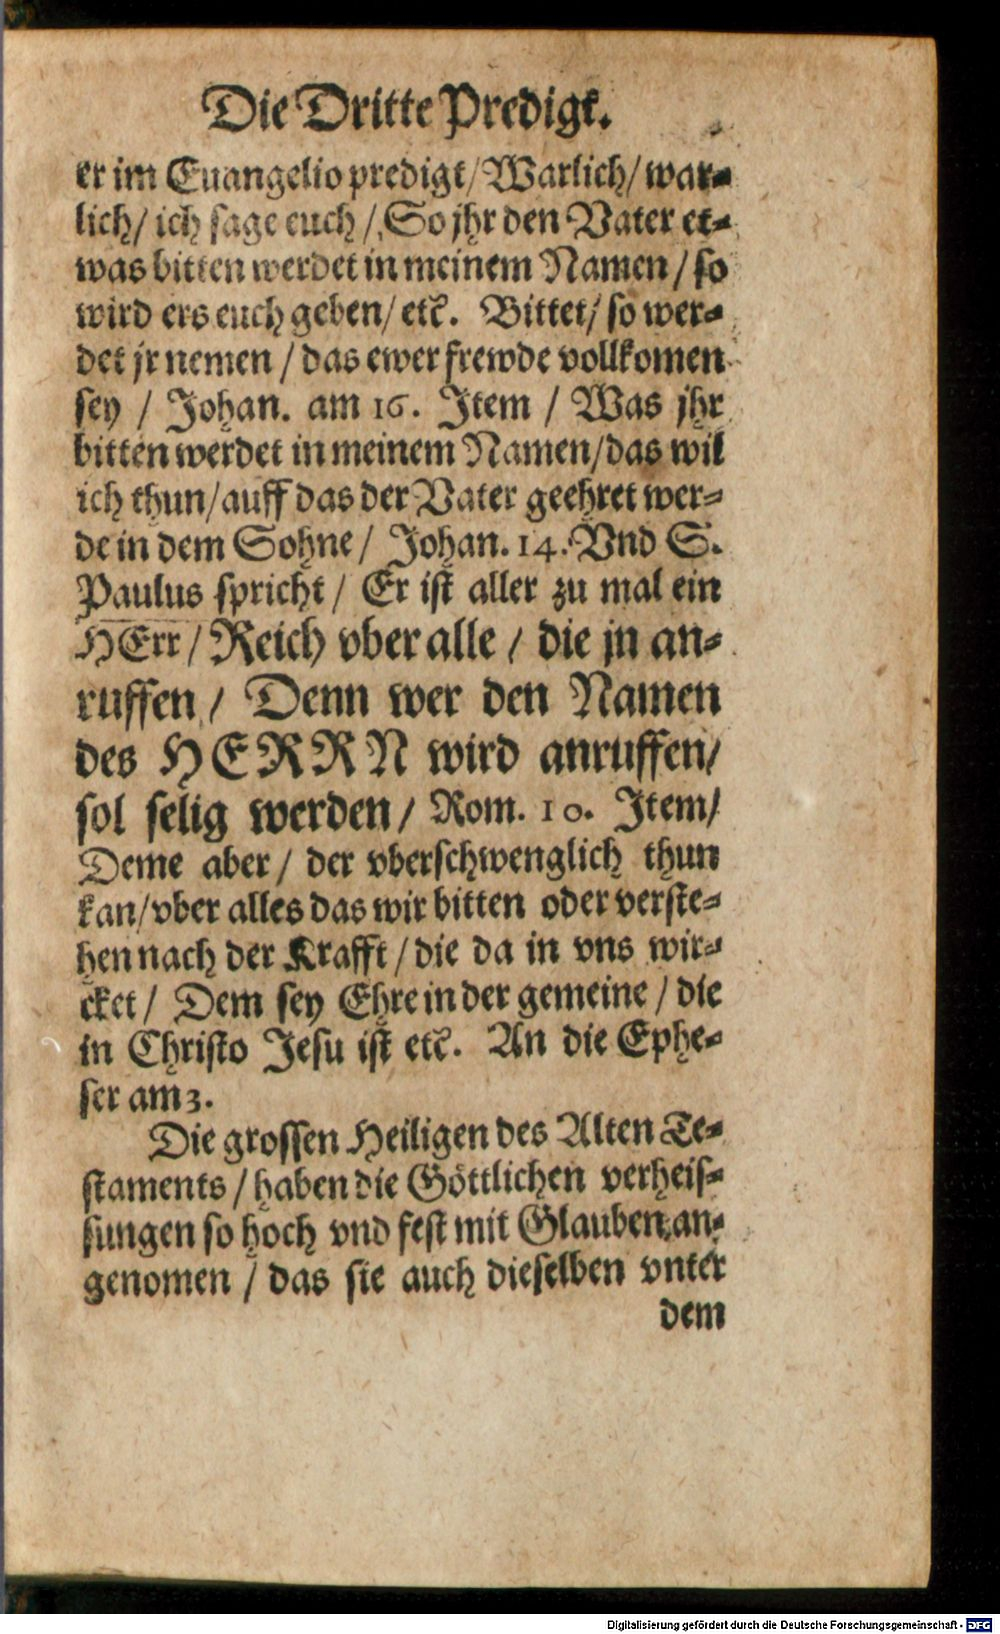 Die Dritte Predigt.
er im Euangelio predigt / Warlich / war-
lich / ich sage euch / So jhr den Vater et-
was bitten werdet in meinem Namen / so
wird ers euch geben / etc. Bittet / so wer-
det jr nemen / das ewer frewde vollkomen
sey / Johan. am 16. Item / Was jhr
bitten werdet in meinem Namen / das wil
ich thun / auff das der Vater geehret wer-
de in dem Sohne / Johan. 14. Vnd S.
Paulus spricht / Er ist aller zu mal ein
HErr / Reich vber alle / die jn an-
ruffen / Denn wer den Namen
des HERRN wird anruffen /
sol selig werden / Rom. 10. Item /
Deme aber / der vberschwenglich thun
kan / vber alles das wir bitten oder verste-
hen nach der Krafft / die da in vns wir-
cket / Dem sey Ehre in der gemeine / die
in Christo Jesu ist etc. An die Ephe-
ser am 3.
Die grossen Heiligen des Alten Te-
staments / haben die Göttlichen verheis-
sungen so hoch vnd fest mit Glauben an-
genomen / das sie auch dieselben vnter
dem
Digitalisierung gefördert durch die Deutsche Forschungsgemeinschaft - DFG